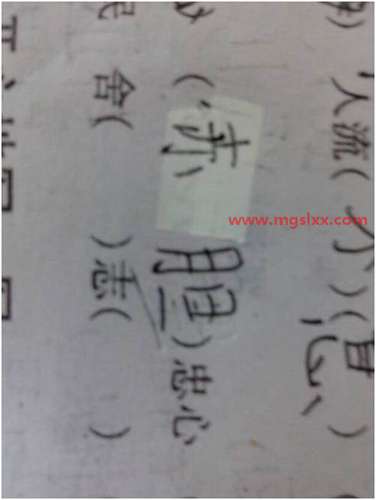 人流(不)(息)
(赤胆)忠心
舍( )志( )
www.mgslxx.com